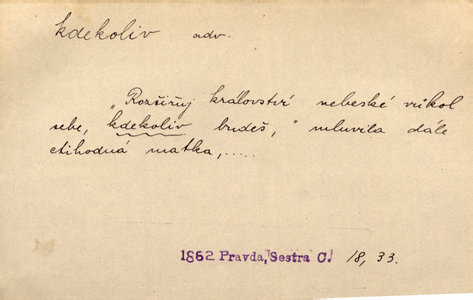 kdekoliv adv.
„Rozšiřuj království nebeské vůkol
sebe, kdekoliv budeš," mluvila dále
ctihodná matka,.....
1862 Pravda, Sestra C. 18, 33.